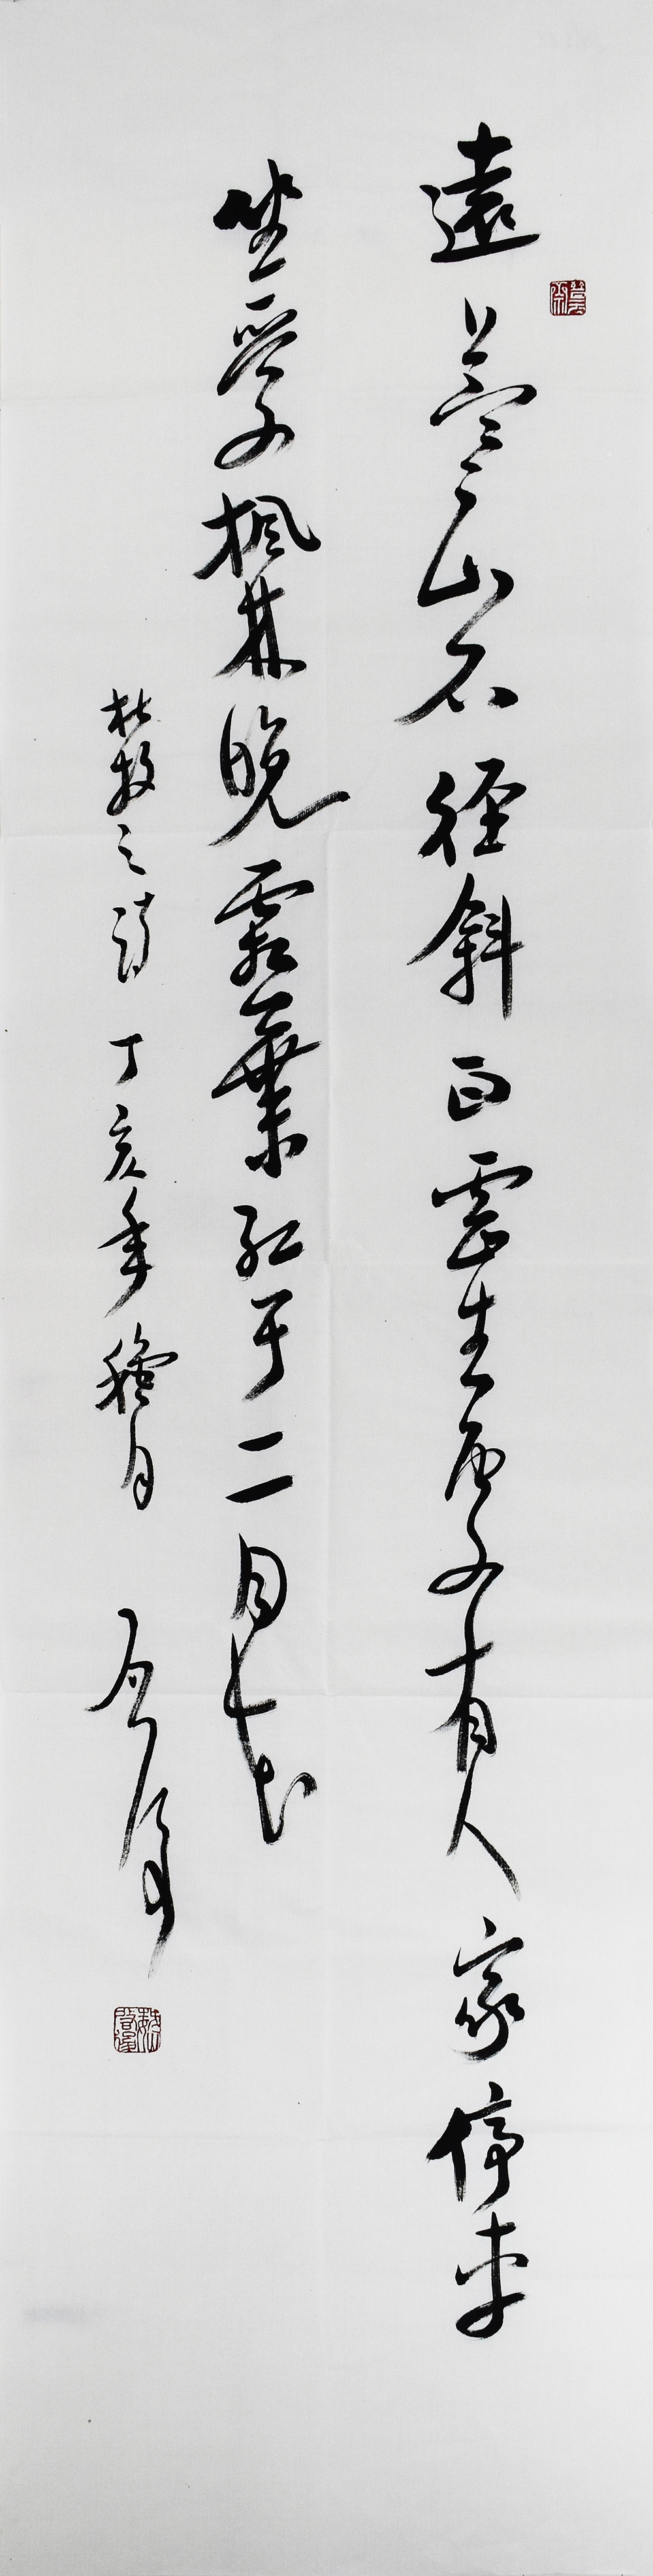 遠上寒山石徑斜白雲生處有人家停車
坐愛楓林晚霜葉紅于二月花
杜牧之詩 丁亥年臘月 启後
魏啟後